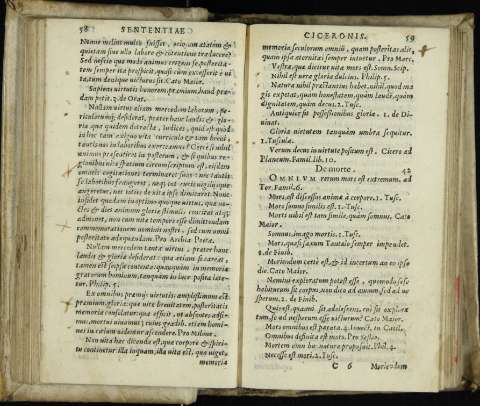 58 SENTENTIAE
Nonne melius multò fuisset, otiosam ætatem &
quietam sine ullo labore & contentione traducere?
Sed nescio quo modo animus erigens se, posterita-
tem semper ita prospicit, quasi cùm excesserit è ui-
ta, tum denique uicturus sit. Cato Maior.
Sapiens uirtutis honorem præmium, haud præ-
dam petit. 3. de Orat.
Nullam uirtus aliam mercedem laborum, pe-
riculorumq; desiderat, præter hanc laudis & glo-
riæ qua quidem detracta, Iudices, quid est quòd
in hoc tam exiguo uitæ curriculo & tam breui,
tantis nos in laboribus exerceamus? Certè si nihil
animus præsentiret in posterum, & si quibus re-
gionibus uitæ spatium circumscriptum est, eisdem
omnes cogitationes terminaret suas: nec tantis
se laboribus frangeret, neq; tot curis uigilijsque
angeretur, nec toties de uita ipsa dimicaret. Nunc
insidet quædam in optimo quoque uirtus, quæ no-
ctes & dies animum gloriæ stimulis concitat atq;
admonet, non cum uitæ tempore esse dimittendam
commemorationem nominis nostri, sed cum omni
posteritate adæquandam. Pro Archia Poeta.
Nullam mercedem tanta uirtus, præter hanc
laudis & gloriæ desiderat: qua etiam si careat,
tamen est seipsa contenta: quanquam in memoria
gratorum hominum, tanquam in luce posita læta-
tur. Philip. 5.
Ex omnibus præmijs uirtutis amplissimum est
præmium, gloria: quæ uitæ breuitatem, posteritatis
memoria consolatur: quæ efficit, ut absentes adsi-
mus, mortui uiuamus: cuius gradib. etiam homi-
nes in cælum uidentur ascendere. Pro Milone.
Non uita hæc dicenda est, quæ corpore & spiri-
tu continetur: illa inquam, illa uita est, quæ uiget
memoria
CICERONIS. 59
memoria seculorum omniũ, quam posteritas alit,
quam ipsa æternitas semper intuetur. Pro Marc.
Vestra, quæ dicitur uita mors est. Somn. Scip.
Nihil est uera gloria dulcius. Philip. 5.
Natura nihil præstantius habet, nihil, quod ma
gis expetat, quàm honestatem, quàm laudẽ, quàm
dignitatem, quàm decus. 2. Tusc.
Antiquior sit possessionibus gloria. 1. de Di-
uinat.
Gloria uirtutem tanquam umbra sequitur.
1. Tuscula.
Verum decus in uirtute positum est. Cicero ad
Plancum. Famil. lib. 10.
De morte. 42
OMNIVM rerum mors est extremum. ad
Ter. Famil. 6.
Mors, est discessus animæ à corpore. 1. Tusc.
Mors somno similis est. 1. Tusc.
Morti nihil est tam simile, quàm somnus. Cato
Maior.
Somnus, imago mortis. 1. Tusc.
Mors, quasi saxum Tantalo semper impendet.
1. de Finib.
Moriendum certè est, & id incertum an eo ipso
die. Cato Maior.
Nemini exploratum potest esse, quomodo sese
habiturum sit corpus, non dico ad annum, sed ad ue
sperum. 2. de Finib.
Quis est, quamuis sit adolescens, cui sit explora
tum, se ad uesperum esse uicturum? Cato Maior.
Mors omnibus est parata. 4. Inuect. in Catil.
Omnibus definita est mors. Pro Sestio.
Mortem omnib. natura proposuit. Phil. 4.
Necesse est mori. 2. Tusc.
C 6 Moriendum